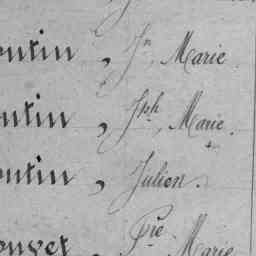 ontin, Jn Marie.
ontin, Jph Marie.
ontin, Julien.
ouvet, Pre Marie